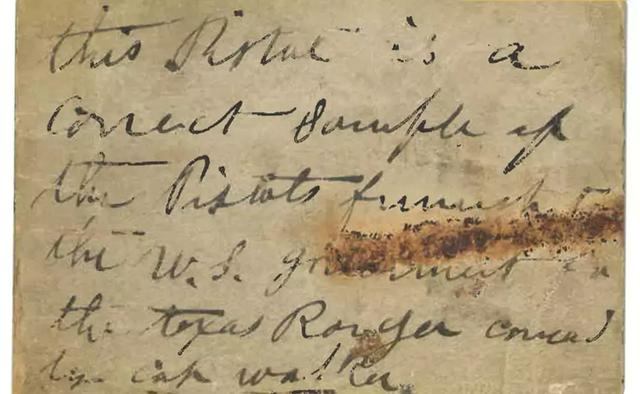 this Pistol is a
Correct Sample of
the Pistols furnisht
the U.S. goverment
the texas Ranger
by cap walker